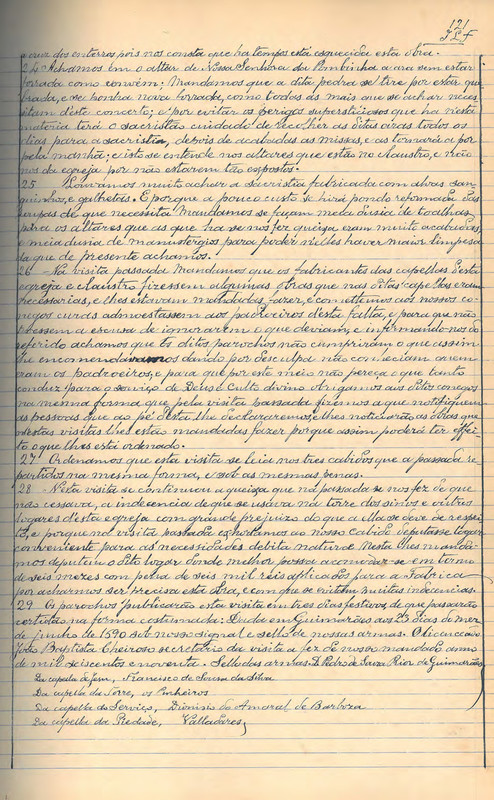 121
a cruz dos enterros pois nos consta que ha tempos está esquecida esta obra.
24 Achamos em o altar de Nossa Senhora da Pombinha a ara sem estar
forrada como convêm; Mandamos que a dita pedra se tire por estar que
brada, e se ponha nova forrada, como todas as mais que se achar neces
sitam d'este concerto; e por evitar os perigos supersticiosos que ha n'esta
materia terá o sacristão cuidado de recolher as ditas aras todos os
dias para a sacristia, depois de acabadas as missas, e as tornará a por
pela manhã; e isto se entende nos altares que estão no claustro, e não
nos da egreja por não estarem tão expostos.
25 Louvamos muito achar a sacristia fabricada com alvas san-
guinhos, e galhetas. E porque a pouco custo se hirá pondo reformada das
roupas de que necessita Mandamos se façam meia duzia de toalhas
para os altares que as que ha se nos fez queixa eram muito acabadas,
e meia duzia de manustergios para poder n'elles haver maior limpesa
da que de presente achamos.
26 Na visita passada Mandamos que os fabricantes das capellas d'esta
egreja e claustro fizessem algumas obras que nas ditas capellas eram
necessarias, e lhes estavam mandadas fazer, e comettemos aos nossos co-
negos curas admoestassem aos padroeiros d'esta falta, e para que não
tivessem a escusa de ignorarem o que deviam, e informando-nos do
referido achamos que os ditos parochos não cumpriram o que assim
lhe encomendavamos dando por desculpa não conheciam quem
eram os padroeiros, e para que por este meio não pereça o que tanto
conduz para o serviço de Deus e culto divino obrigamos aos ditos conegos
na mesma forma que pela visita passada fizemos a que notifiquem
as pessoas que ao pé d'esta lhe declararemos, e lhes noticiarão as obras que
n'estas visitas lhe estão mandadas fazer porque assim poderá ter effei-
to o que lhes está ordenado.
27 Ordenamos que esta visita se leia nos tres cabidos que a passada re-
partidos na mesma forma, e sob as mesmas penas.
28 N'esta visita se continuou a queixa que na passada se nos fez de que
não cessava, a indecencia de que se usava na torre dos sinos e outros
logares d'esta egreja com grande prejuizo do que a ella se deve de respei-
to, e porque na visita passada exhortamos ao nosso Cabido deputasse logar
conveniente para as necessidades debita natura. N'esta lhes manda-
mos deputem o dito logar donde melhor possa acomodar-se em termo
de seis mezes com pena de seis mil reis aplicados para a Fabrica
por acharmos ser precisa esta obra, e com que se evitam muitas indecencias.
29 Os parochos publicarão esta visita em tres dias festivos, de que passarão
certidão na forma costumada. Dada em Guimarães aos 22 dias do mez
de junho de 1590 sob nosso signal e sello de nossas armas. O licenceado
João Baptista Cheiroso secretario da visita a fez de nosso mandado anno
de mil seiscentos e noventa. Sello das armas. D. Pedro de Sousa Prior de Guimarães
Da capella de Jem, Francisco de Sousa da Silva
Da capella da Torre, os Pinheiros
Da capella do Serviço, Dionisio do Amaral de Barboza
Da capella da Piedade, Valladares,